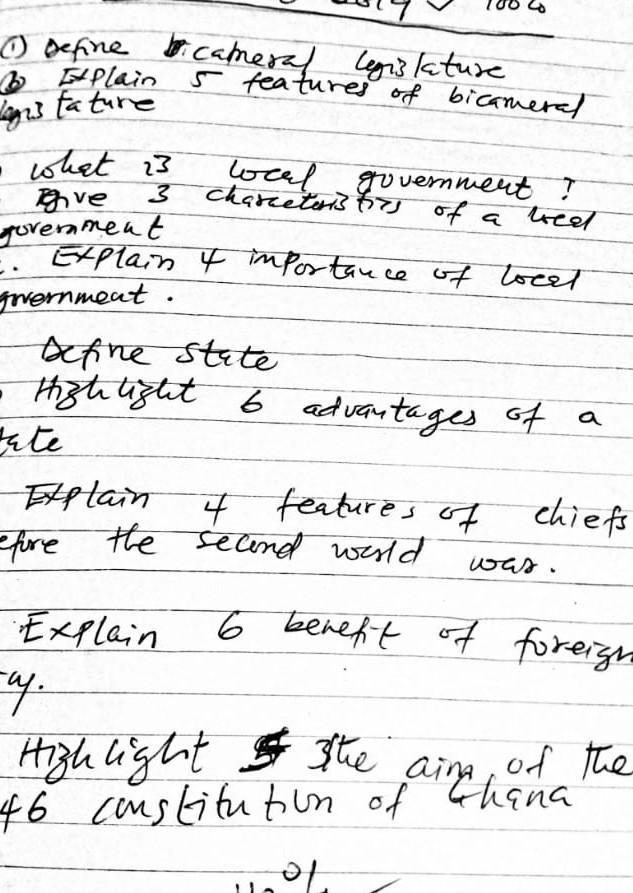 100%
① Define bicameral legislature
② Explain 5 features of bicameral
legislature
what is local government ?
give 3 charceteristics of a local
government
. Explain 4 importance of local
government .
Define State
Highlight 6 advantages of a
tate
Explain 4 features of chiefs
efore the second world war.
Explain 6 benefit of foreign
ay.
Highlight 3 the aim of the
46 constitution of Ghana